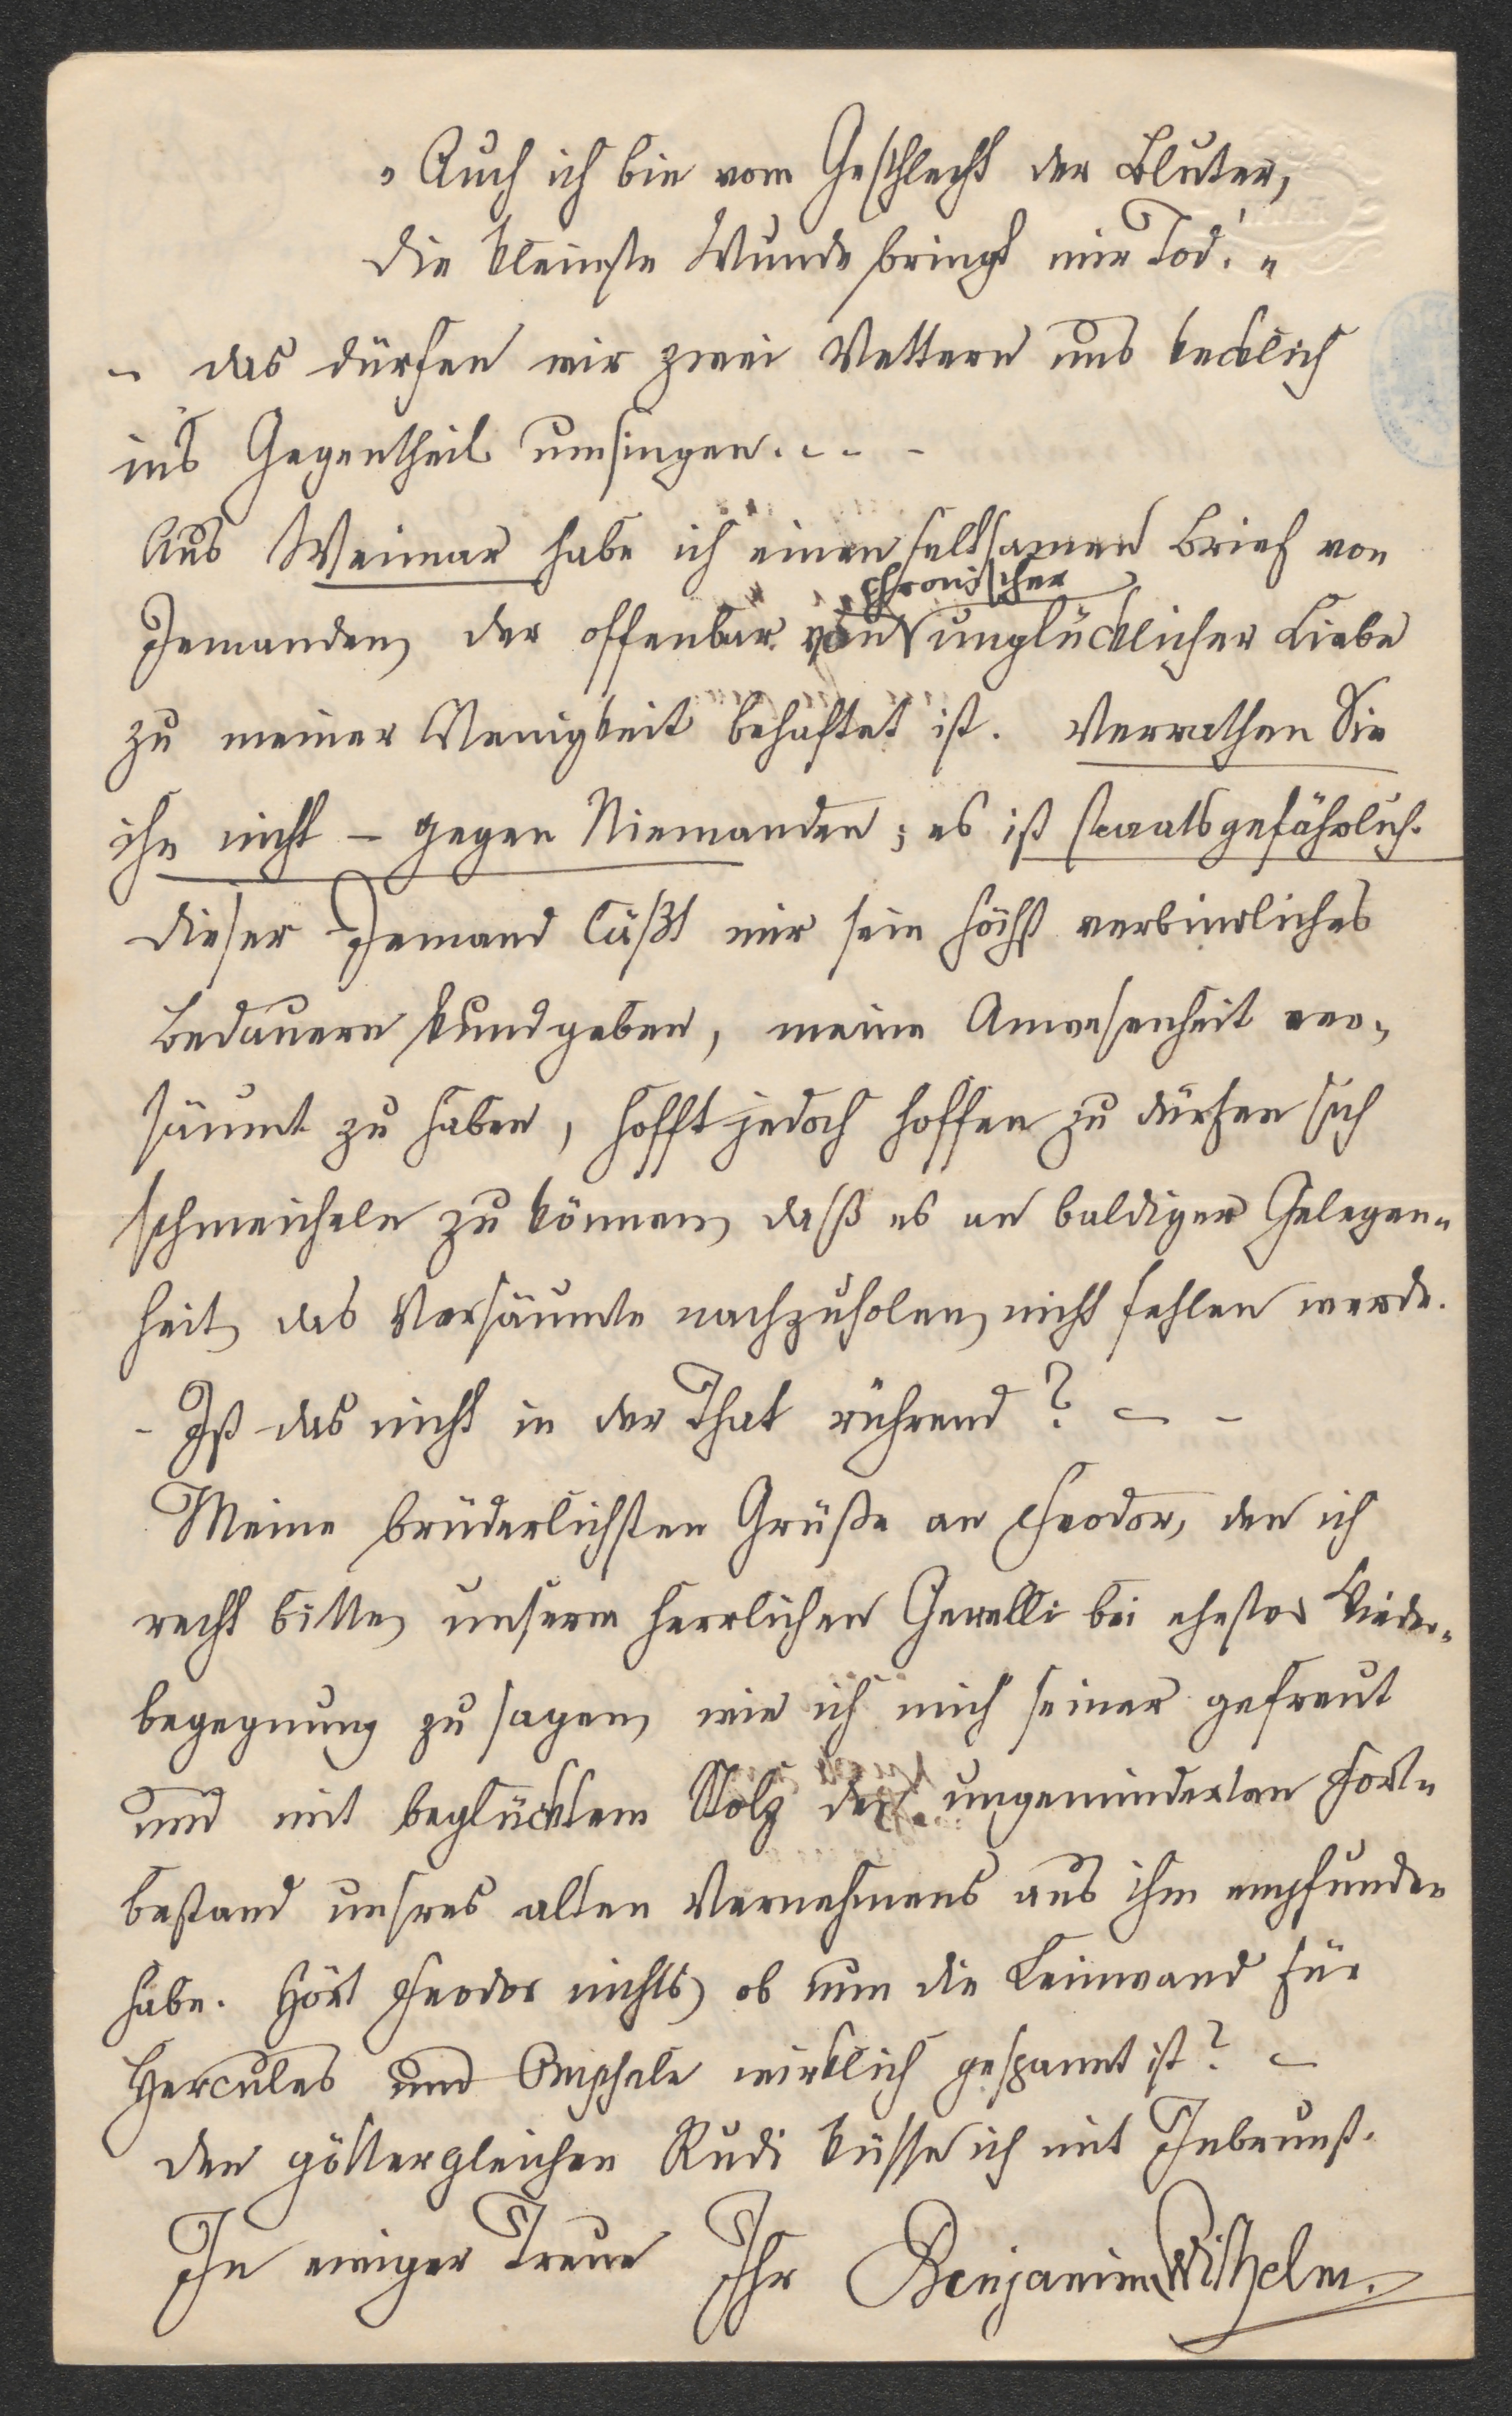 „Auch ich bin vom Geschlecht der Bluter,
die kleinste Wunde bringt mir Tod!“
– das dürfen wir zwei Vettern uns kecklich
in's Gegentheil umsingen. – – –
Aus Weimar habe ich einen seltsamen Brief von
chronischer
Jemanden, der offenbar von unglücklicher Liebe
zu meiner Wenigkeit behaftet ist. Verrathen Sie
ihn nicht – gegen Niemanden; es ist staatsgefährlich.
Dieser Jemand läßt mir sein höchst verbindliches
Bedauern kundgeben, meine Anwesenheit ver-
säumt zu haben, hofft jedoch hoffen zu dürfen sich
schmeicheln zu können, daß es an baldiger Gelegen-
heit, das Versäumte nachzuholen, nicht fehlen werde.
– Ist das nicht in der That rührend? – –
Meine brüderlichsten Grüße an Feodor, den ich
recht bitte, unserm herrlichen Gevatter bei ehester Wieder-
begegnung zu sagen, wie ich mich seiner gefreut
und mit beglücktem Stolz den ungeminderten Fort-
bestand unsres alten Vernehmens aus ihm empfunden
habe. Hört Feodor nichts, ob nun die Leinwand für
Hercules und Omphale wirklich gespannt ist? –
Den göttergleichen Rudi küsse ich mit Inbrunst.
In ewiger Treue Ihr Benjamin Wilhelm.